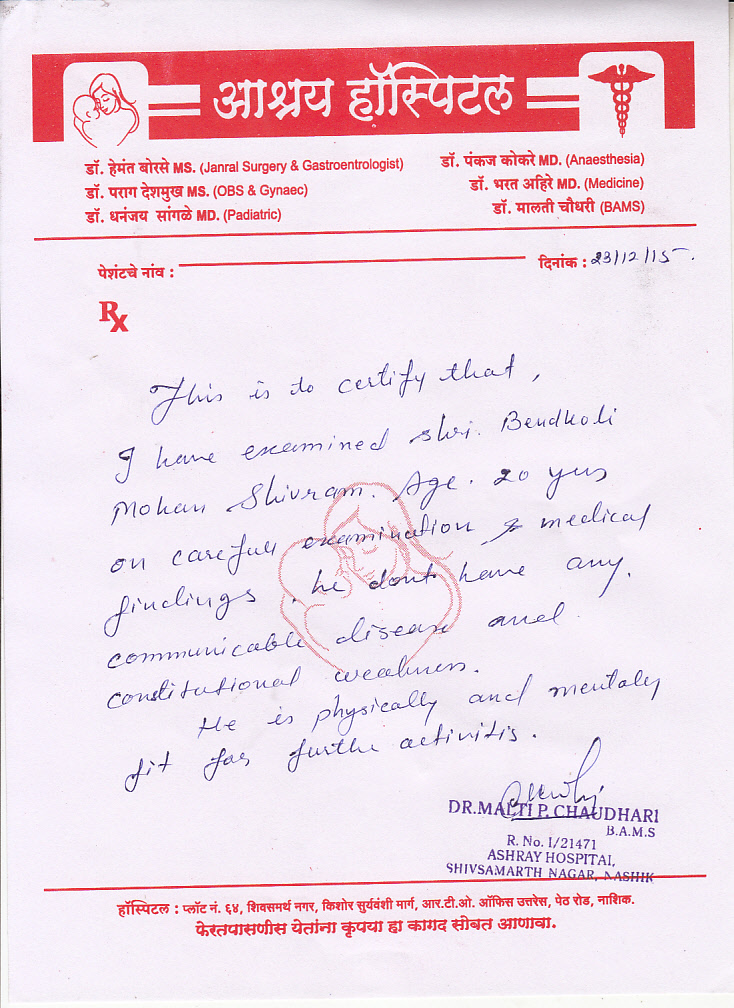 आश्रय हॉस्पिटल
डॉ. हेमंत बोरसे MS. (Janral Surgery & Gastroentrologist)
डॉ. पंकज कोकरे MD. (Anaesthesia)
डॉ. पराग देशमुख MS. (OBS & Gynaec)
डॉ. भरत अहिरे MD. (Medicine)
डॉ. धनंजय सांगळे MD. (Padiatric)
डॉ. मालती चौधरी (BAMS)
पेशंटचे नांव :
दिनांक : 23/12/15
Rx
This is to certify that,
I have examined shri. Bendkoli
Mohan Shivram. Age. 20 yrs
on careful examination & medical
findings. he dont have any.
communicable disease and
constitutional weakness.
He is physically and mentaly
fit for furthe activitis.
DR.MALTI P. CHAUDHARI
B.A.M.S
R. No. I/21471
ASHRAY HOSPITAL,
SHIVSAMARTH NAGAR, NASHIK
हॉस्पिटल : प्लॉट नं. ६४, शिवसमर्थ नगर, किशोर सुर्यवंशी मार्ग, आर.टी.ओ. ऑफिस उत्तरेस, पेठ रोड, नाशिक.
फेरतपासणीस येतांना कृपया हा कागद सोबत आणावा.